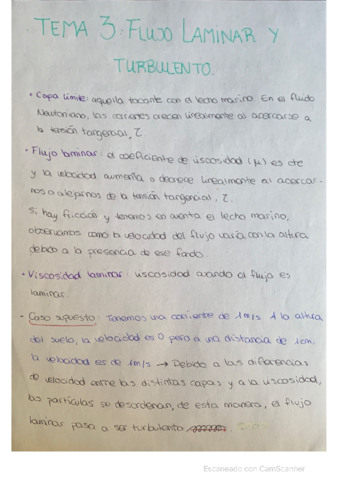 TEMA 3: FLUJO LAMINAR Y
TURBULENTO.
• Capa límite: aquella tocante con el lecho marino. En el fluido
Newtoniano, las corrientes crecen linealmente al acercarse a
la tensión tangencial, τ.
• Flujo laminar: el coeficiente de viscosidad (μ) es cte
y la velocidad aumenta o decrece linealmente al acercar-
nos o alejarnos de la tensión tangencial, τ.
Si hay fricción y tenemos en cuenta el lecho marino,
observamos como la velocidad del flujo varía con la altura
debido a la presencia de ese fondo.
• Viscosidad laminar: viscosidad cuando el flujo es
laminar
• Caso supuesto: Tenemos una corriente de 1m/s. A la altura
del suelo, la velocidad es 0 pero a una distancia de 1cm.
la velocidad es de 1m/s → Debido a las diferencias
de velocidad entre las distintas capas y a la viscosidad,
las partículas se desordenan, de esta manera, el flujo
laminar pasa a ser turbulento
Escaneado con CamScanner